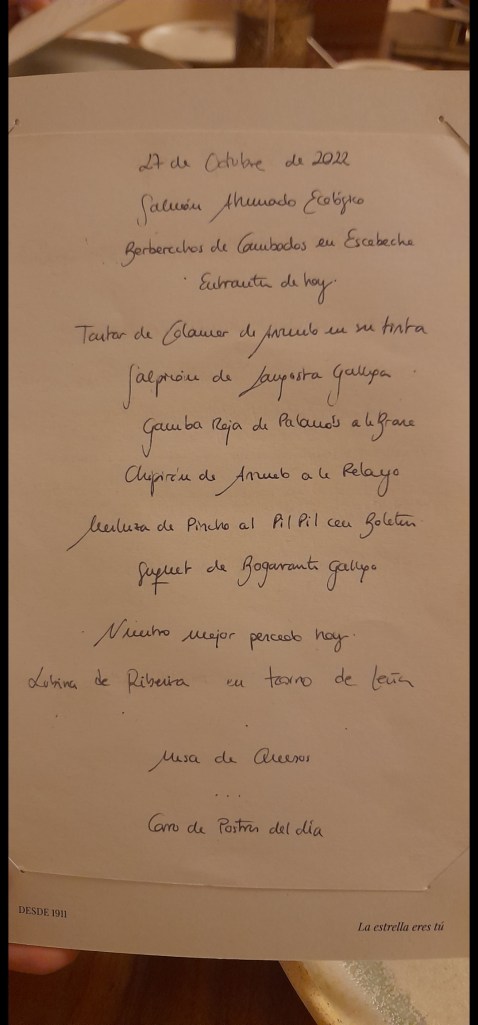 27 de Octubre de 2022
Salmón Ahumado Ecológico
Berberechos de Cambados en Escabeche
Entrantes de hoy.
Tartar de Calamar de Anzuelo en su tinta
Salpicón de Langosta Gallega
Gamba Roja de Palamós a la Brasa
Chipirón de Anzuelo a la Pelayo
Merluza de Pincho al Pil Pil con Boletus
Suquet de Bogavante Gallego
Nuestro mejor pescado hoy.
Lubina de Ribeira en horno de leña
Mesa de Quesos
...
Carro de Postres del día
DESDE 1911
La estrella eres tú